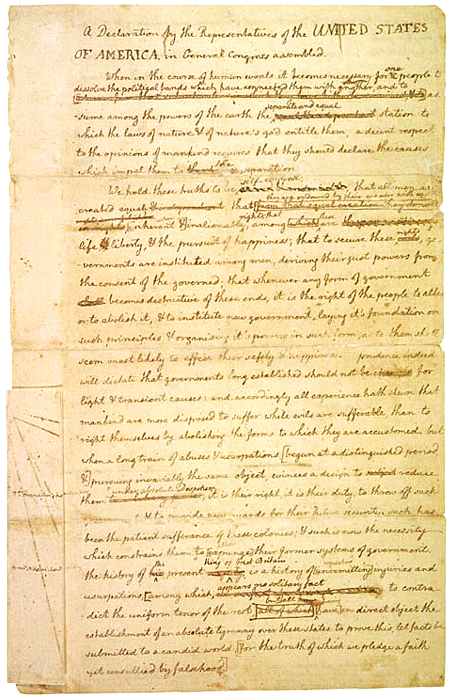 A Declaration by the Representatives of the UNITED STATES
OF AMERICA, in General Congress assembled.
When in the course of human events it becomes necessary for one people to
dissolve the political bands which have connected them with another, and to
as-
separate and equal
sume among the powers of the earth the station to
which the laws of nature & of nature's god entitle them, a decent respect
to the opinions of mankind requires that they should declare the causes
which impel them to the separation.
We hold these truths to be self-evident, that all men are
created equal that
rights; that
inherent & inalienable, among which are
life & liberty, & the pursuit of happiness; that to secure these rights, go-
vernments are instituted among men, deriving their just powers from
the consent of the governed; that whenever any form of government
becomes destructive of these ends, it is the right of the people to alter
or to abolish it, & to institute new government, laying it's foundation on
such principles & organising it's powers in such form, as to them shall
seem most likely to effect their safety & happiness. prudence indeed
will dictate that governments long established should not be changed for
light & transient causes: and accordingly all experience hath shewn that
mankind are more disposed to suffer while evils are sufferable, than to
right themselves by abolishing the forms to which they are accustomed. but
when a long train of abuses & usurpations [begun at a distinguished period,
&] pursuing invariably the same object, evinces a design to reduce
them under absolute Despotism, it is their right, it is their duty, to throw off such
& to provide new guards for their future security. such has
been the patient sufferance of these colonies; & such is now the necessity
which constrains them to [expunge] their former systems of government.
the history of the present King of Great Britain is a history of [unremitting] injuries and
usurpations, [among which appears no solitary fact to contra-
dict the uniform tenor of the rest all of which have] in direct object the
establishment of an absolute tyranny over these states. to prove this, let facts be
submitted to a candid world [for the truth of which we pledge a faith
yet unsullied by falsehood]